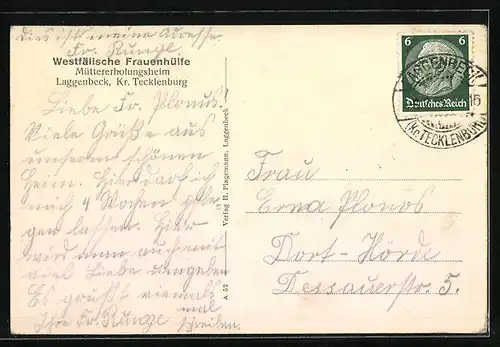 Dies ist meine Adresse.
Fr. Runge.
Westfälische Frauenhülfe
Müttererholungsheim
Laggenbeck, Kr. Tecklenburg
Liebe Fr. Plonus!
Viele Grüße aus
unserm schönen
Heim. Hier darf ich
mich 4 Wochen pfle-
gen lassen. Hier
wird man auch mit
viel Liebe umgeben
Es grüßt viemals
Ihre Fr. Runge
mal
Verlag H. Plagemann, Laggenbeck
A 52
6
Deutsches Reich
LAGGENBECK
16
(Kr. TECKLENBURG)
Frau
Erna Plonus
Dort-Hörde
Dessauerstr. 5.